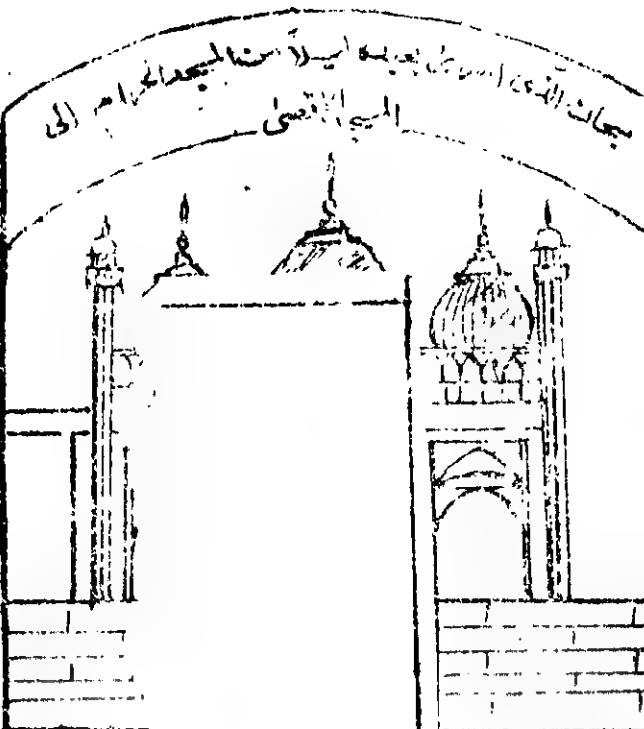 سبحان الذى اسرىٰ بعبده ليلاً من المسجد الحرام الى
المسجد الاقصىٰ